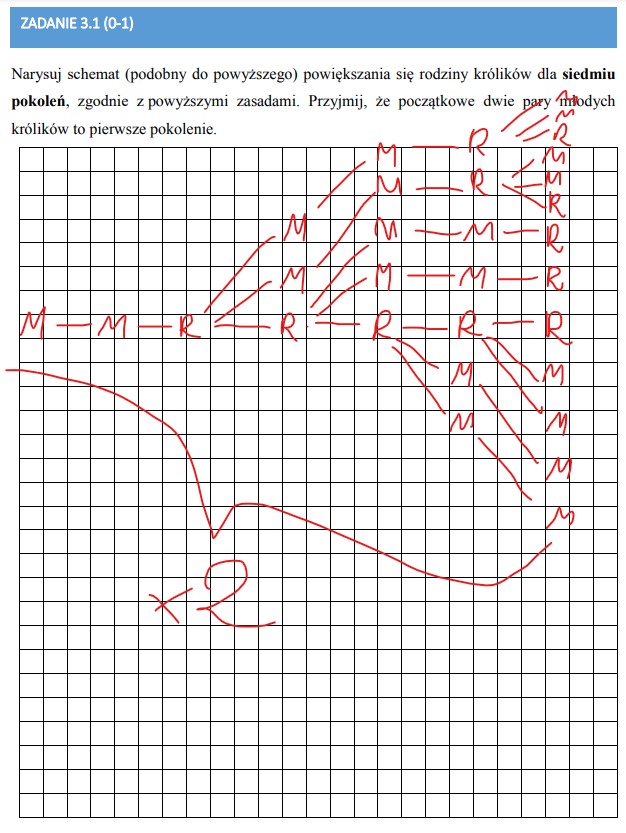 ZADANIE 3.1 (0-1)
Narysuj schemat (podobny do powyższego) powiększania się rodziny królików dla siedmiu
pokoleń, zgodnie z powyższymi zasadami. Przyjmij, że początkowe dwie pary młodych
królików to pierwsze pokolenie.
M
M
M R R
M M
M R M
M R
M M M R
M M M R
M M R R R R R
M M
M M
M
M
x2